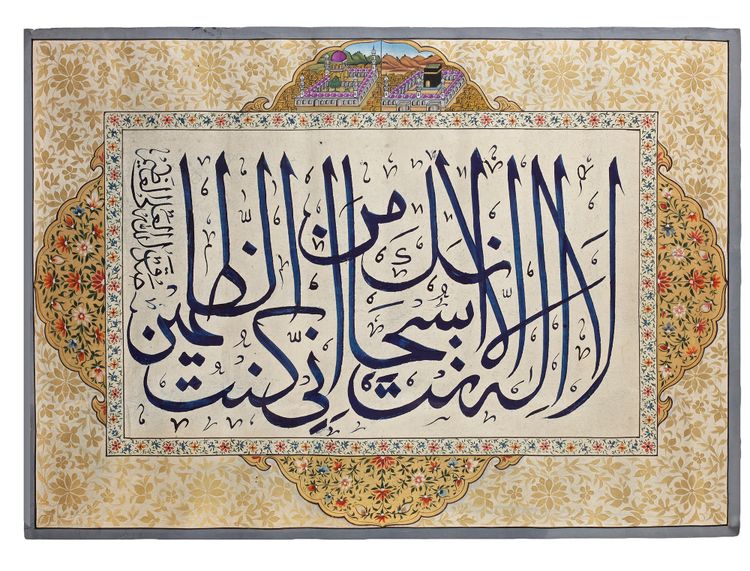 لا اله الا انت سبحانك اني كنت من الظلمين